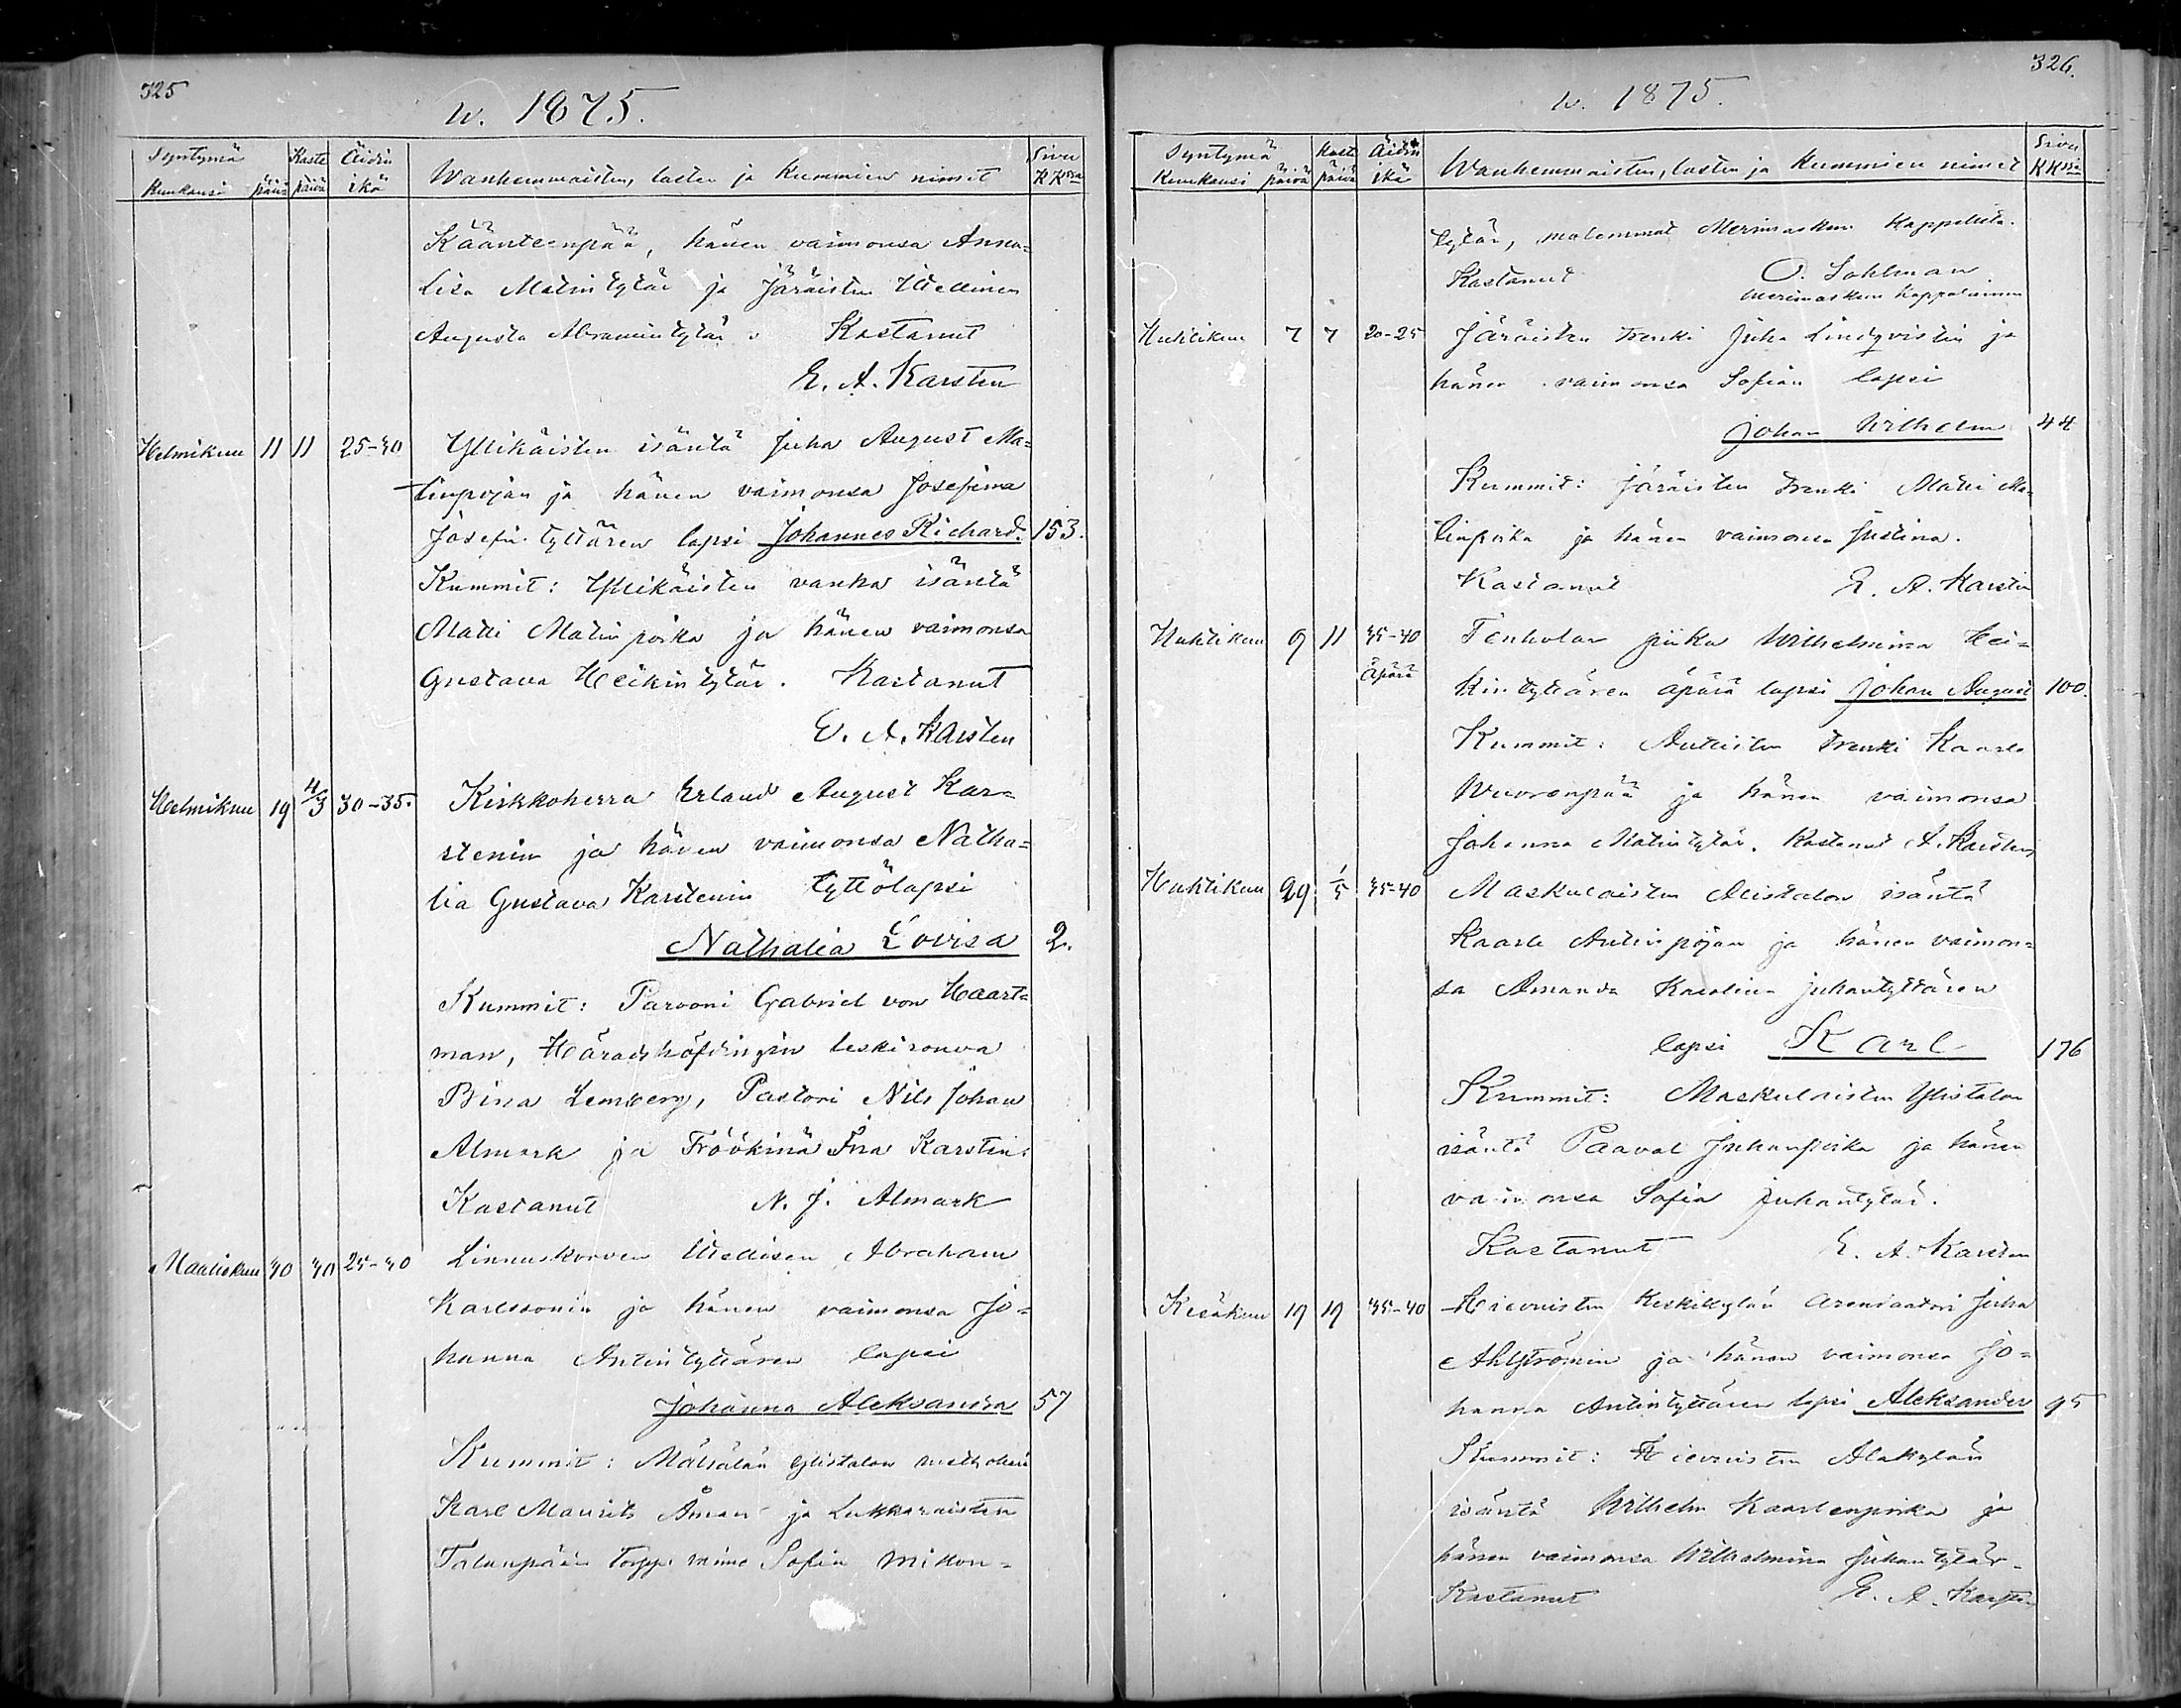 325
w. 1875.
Syntymä Kaste Äidin Wanhemmaisten, lasten ja Kummien nimet Sivu
Kuukausi päivä päivä ikä KKssa
Käänteenpää, hänen vaimonsa Anna=
Lisa Matintytär ja Järäisten Itsellinen
Augusta Abramintytär. Kastanut
E. A. Karsten
Helmikuu 11 11 25-30 Ylikäisten isäntä Juha August Ma=
tinpojan ja hänen vaimonsa Josefina
Josefin tyttären lapsi Johannes Richard. 153.
Kummit: Ylikäisten vanha isäntä
Matti Matinpoika ja hänen vaimonsa
Gustava Heikintytär. Kastanut
E. A. Karsten
Helmikuu 19 4/3 30-35. Kirkkoherra Erland August Kar=
stenin ja hänen vaimonsa Natha=
lia Gustava Karstenin tyttölapsi
Nathalia Lovisa 2.
Kummit: Parooni Gabriel von Haart=
man, Häradshöfdingin leskirouva
Bina Lemberg, Pastori Nils Johan
Almark ja Fröökinä Ina Karsten.
Kastanut N. J. Almark
Maaliskuu 30 30 25-30 Linnuskorven Itellisen Abraham
Karlssonin ja hänen vaimonsa Jo=
hanna Antintyttären lapsi
Johanna Aleksandra 57
Kummit: Mälsälän Ylistalon
Karl Maurits Åman ja Lukkaraisten
Talanpään Sofia Mikon=
326.
w. 1875.
Syntymä Kaste Äidin Wanhemmaisten, lasten ja Kummien nimet Sivu
Kuukausi päivä päivä ikä KKssa
tytär, molemmat Merimaskun Kappelista.
Kastanut O. Sohlman
Merimaskun Kappalainen
Huhtikuu 7 7 20-25 Järäisten trenki Juha Lindqvistin ja
hänen vaimonsa Sofian lapsi
Johan Wilhelm 44
Kummit: Järäisten trenki Matti Ma=
tinpoika ja hänen vaimonsa Justina.
Kastanut E. A. Karsten
Huhtikuu 9 11 35-40 Tenholan piika Wilhelmina Hei=
äpärä kintyttären äpärä lapsi Johan August 100.
Kummit: Anteisten trenki Kaarle
Wuorenpää ja hänen vaimonsa
Johanna Matintytär. Kastanut A. Karsten
Huhtikuu 29 1/5 35-40 Maskulaisten Alistalon isäntä
Kaarle Antinpojan ja hänen vaimon=
sa Amanda Karolina Juhantyttären
lapsi Karl 176
Kummit: Maskulaisten Ylistalon
isäntä Paaval Juhanpoika ja hänen
vaimonsa Sofia Juhantytär.
Kastanut E. A. Karsten
Kesäkuu 19 19 35-40 Hievoisten Keskikylän arendaatori Juha
Ahlströmin ja hänen vaimonsa Jo=
hanna Antintyttären lapsi Aleksander 95
Kummit: Hievoisten Alakylän
isäntä Wilhelm Kaarlenpoika ja
hänen vaimonsa Wilhelmina Juhantytär.
Kastanut E. A. Karsten